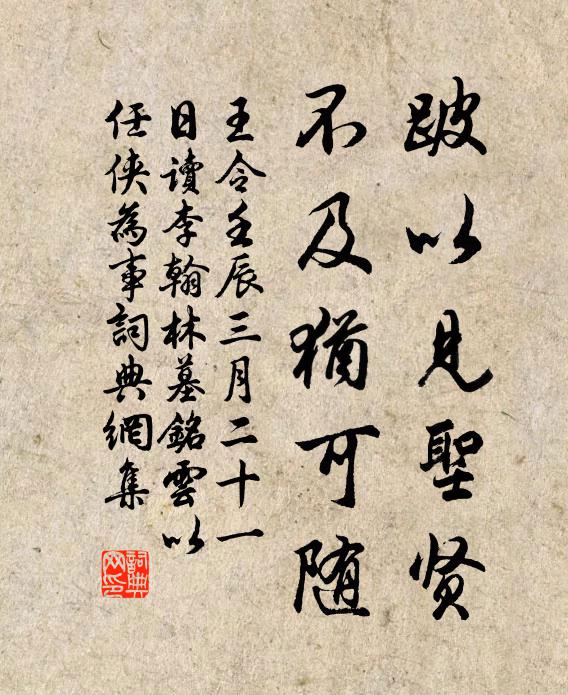 跛以見聖贤
不及猶可随
王令壬辰三月二十一
日讀李翰林墓銘雲以
任侠為事詞典網集
詞典
网印